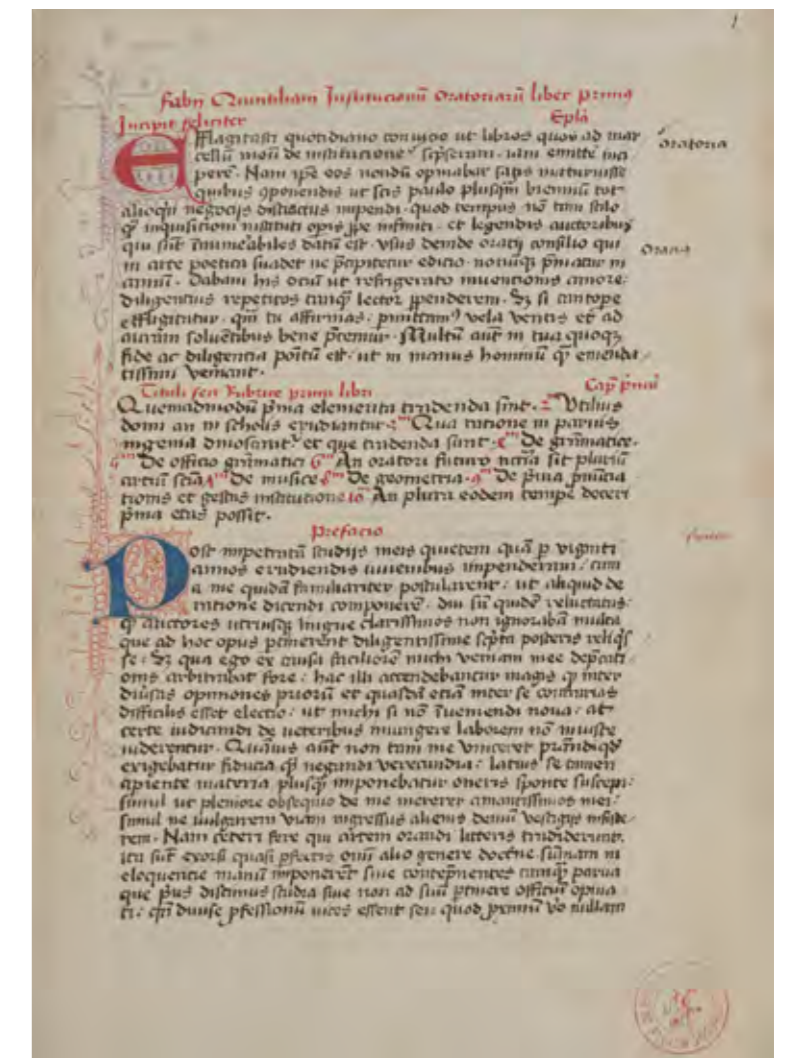 Fabij Quintiliani Institucionū Oratoriarū liber primꝰ
Incipit feliciter Epl̄a
Efflagitasti quotidiano conuicio ut libros quos ad mar
cellū meū de institucione scͥpseram iam emitte inci
pere Nam ipe eos nondū opinabar satis maturuisse
quibus ꝯponendis ut scis paulo plusqm̄ bienniū tot
alioqui negocijs districtus impendi quod tempus nō tam stilo
qͣ inquisicioni instituti opis infiniti et legendis auctoribus
qui sūt īnumerabiles datū est usus deinde oratij consilio qui
in arte poetica suadet ne pͥcipitetur edicio nonūqꝫ pͥmatur in
annū Dabam his ociū ut refrigerato inuentionis amore
diligentius repetitos tanqͣ lector ꝑpenderem Sꝫ si tantope
efflagitatur qm̄ tu affirmas vela ventis et ad
auram soluētibus bene pͥcemur Multū aut̄ in tua quoqꝫ
fide ac diligentia poitū est ut in manus hominū qͣ emenda
tissimi veniant
Oratoria
Oracij
Tituli seu Rubrice primi libri Cap pͥmi
Quemadmodū pͥma elementa tradenda sint 2m Utilius
domi an in scholis erudiantur Qua ratione in paruis
ingenia dinoscant et que tradenda sint De grāmatice
De officio grāmatici An oratori futuro sit pluriū
artiū De musice De geometria De pͥma
tionis et gestus institutione 10 An plura eodem tempe doceri
pͥma etas possit
Prefacio
Post impetratā studijs meis quietem quā ꝑ viginti
annos erudiendis iuuenibus impenderam cum
a me quidā familiariter postularent ut aliquid de
ratione dicendi componere diu sū quidē reluctatus
qͣ auctores utriusqꝫ lingue clarissimos non ignorabā multa
que ad hoc opus ptinerent diligentissime scͥpta posteris reliqͥs
se Sꝫ qua ego ex causa faciliorē michi veniam mee depͥcati
onis arbitrabar fore hac illi accendebantur magis qͣ inter
diūsas opiniones priorū et quasdā etiā inter se contrarias
difficilis esset electio ut michi si nō īueniendi noua at
certe iudicandi de ueteribus iniungere laborem nō iniuste
uiderentur Quāuis aut̄ non tam me vinceret
exigebatur fiducia qͣ negandi verecundia latius se tamen
apiente materia plusqͣ imponebatur oneris sponte suscepi
simul ut pleniore obsequio de me mererer amantissimos mei
simul ne uulgarem viam ingressus alienis demū vestigijs insiste
rem Nam ceteri fere qui artem orandi litteris tradiderunt
ita sūt exorsi quasi pfectis omī alio genere doctͥne sūmam in
eloquentie manū imponerēt siue contēpnentes tanqͣ parua
que pͥus discimus studia siue non ad suū ptinere officiū opina
ti qn̄ diuise pfessionū uices essent seu quod ꝓximū vo nullam